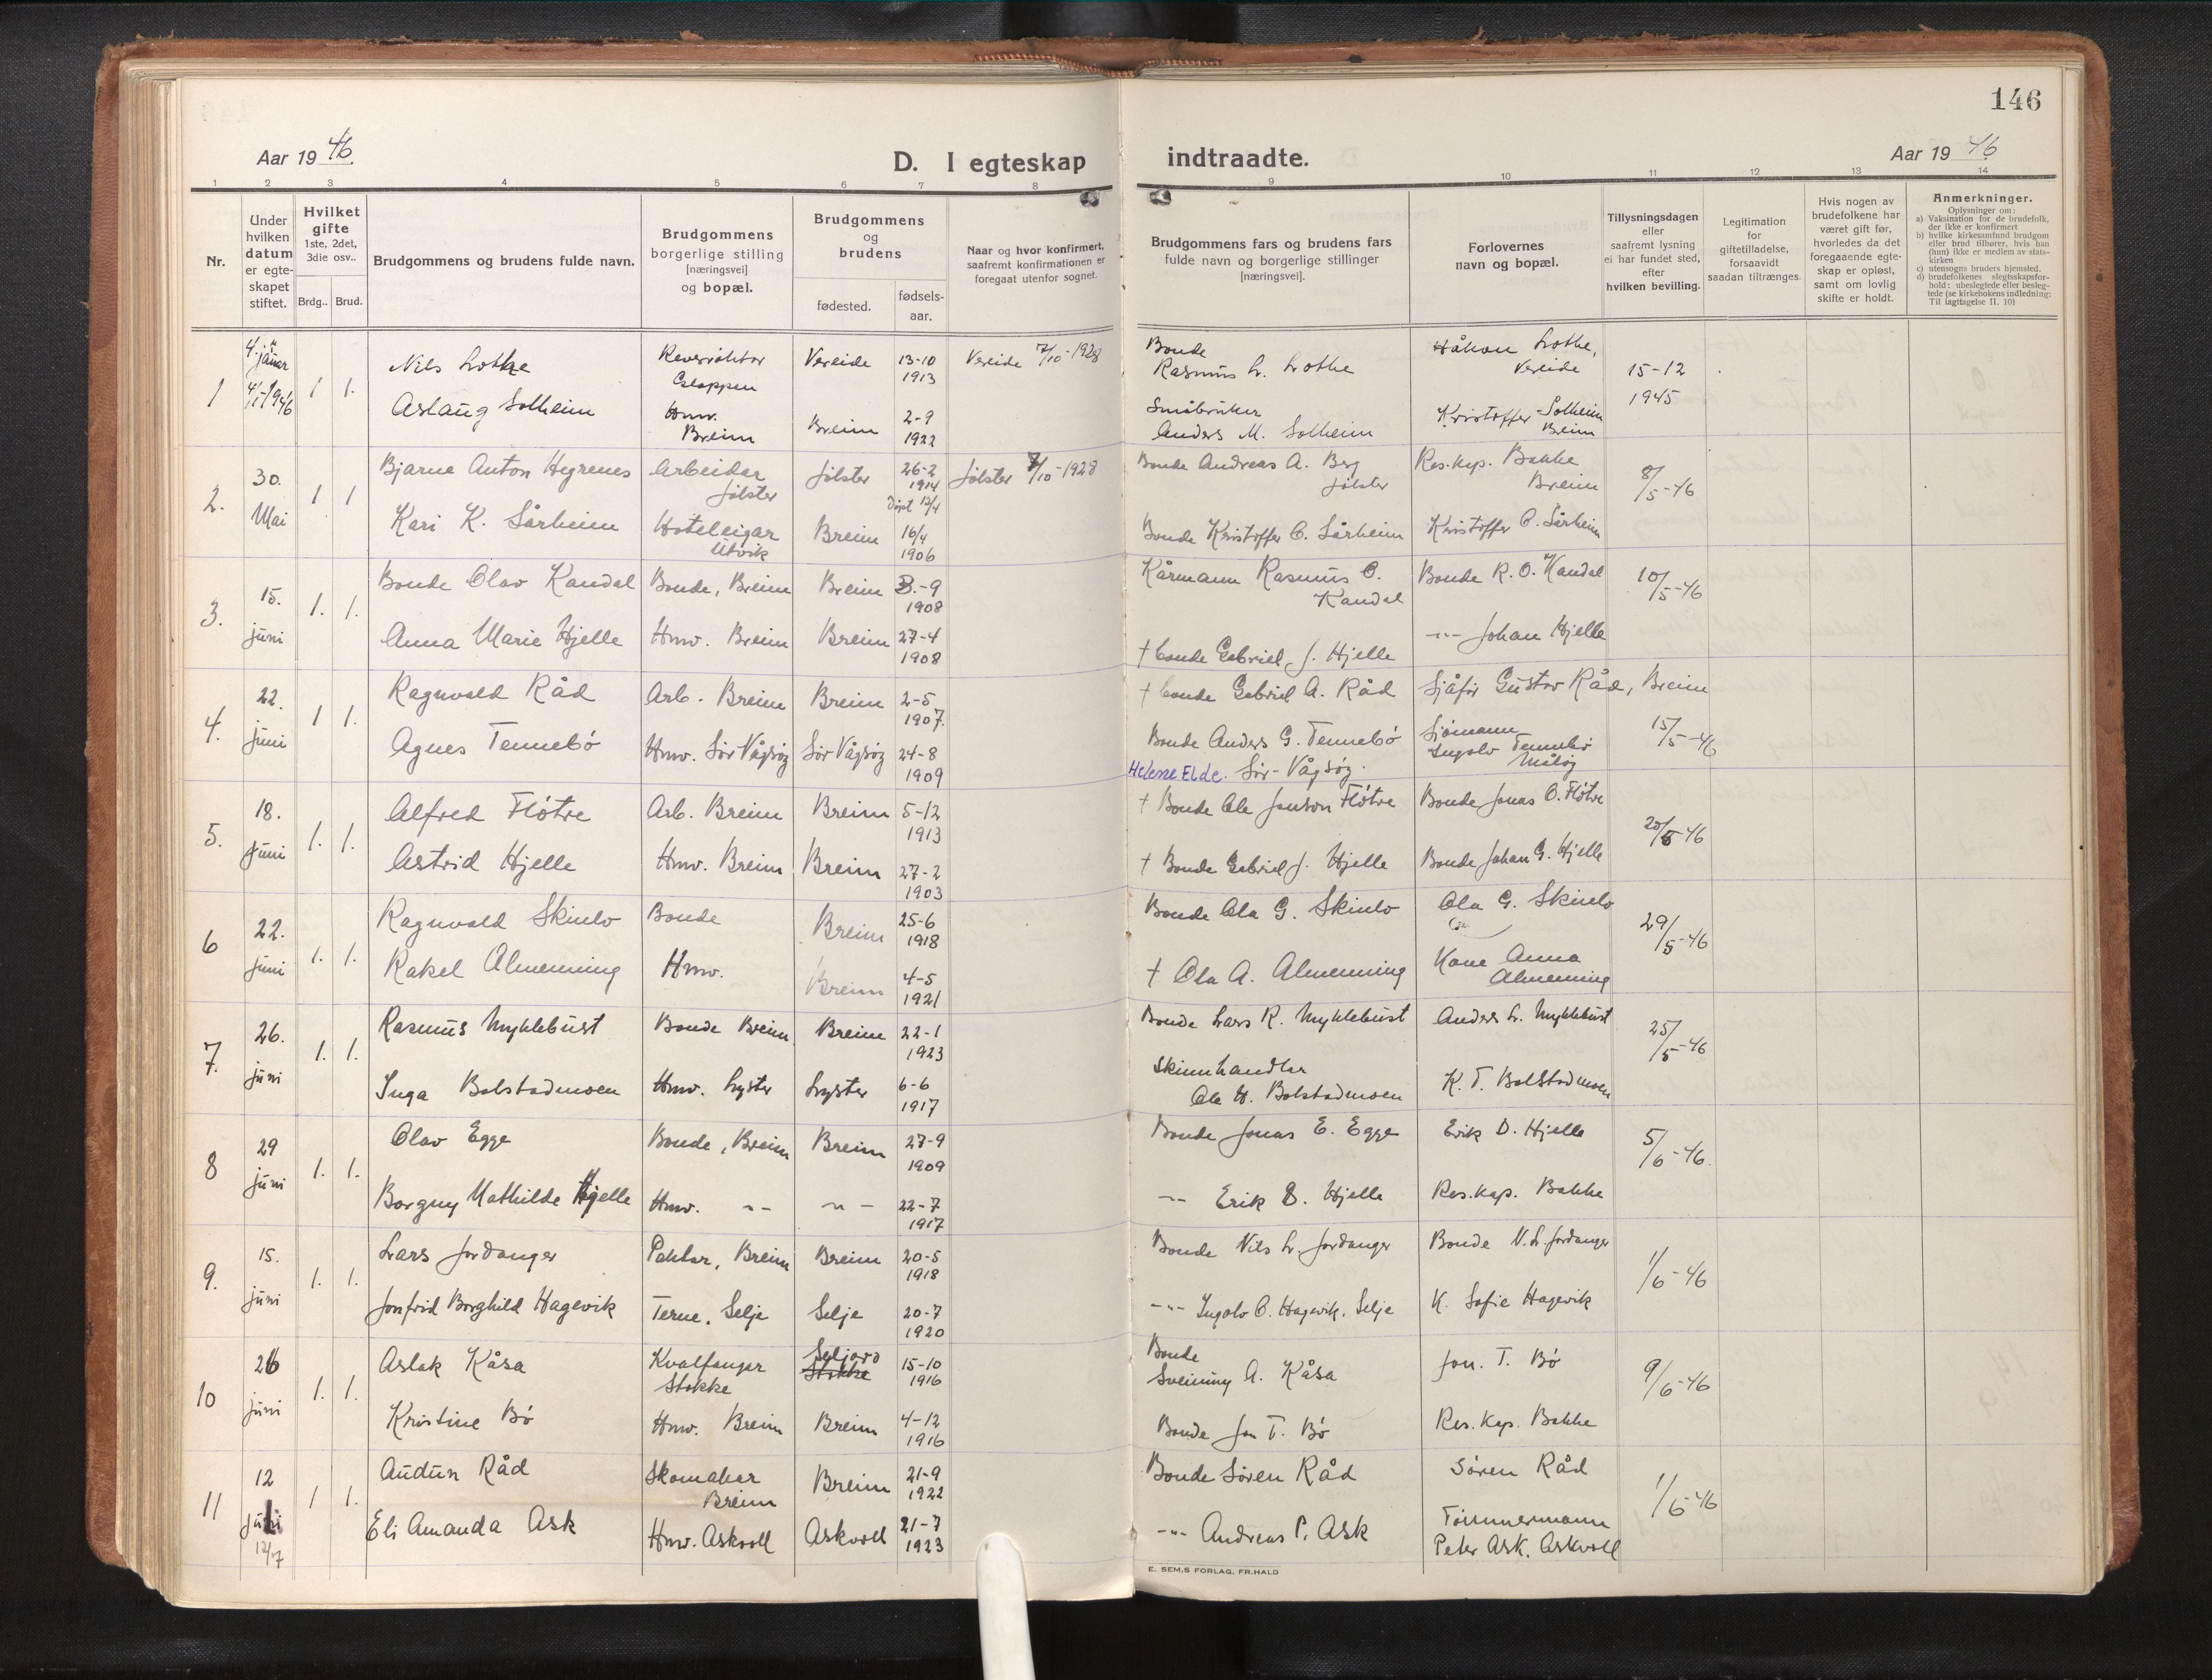 146
Aar 19 46.
D. I egteskap indtraadte.
Aar 19 46
1 2 3 4 5 6 7 8 9 10 11 12 13 14
Nr.
Under hvilken datum er egte-skapet stiftet.
Hvilket gifte
1ste, 2det, 3die osv..
Brdg.. Brud.
Brudgommens og brudens fulde navn.
Brudgommens borgerlige stilling [næringsvei] og bopæl.
Brudgommens og brudens
fødested.
fødsels-aar.
Naar og hvor konfirmert, saafremt konfirmationen er foregaat utenfor sognet.
Brudgommens fars og brudens fars fulde navn og borgerlige stillinger [næringsvei].
Forlovernes navn og bopæl.
Tillysningsdagen eller saafremt lysning ei har fundet sted, efter hvilken bevilling.
Legitimation for giftetilladelse, forsaavidt saadan tiltrænges.
Hvis nogen av brudefolkene har været gift før, hvorledes da det foregaaende egte-skap er opløst, samt om lovlig skifte er holdt.
Anmerkninger.
Oplysninger om:
a) Vaksination for de brudefolk, der ikke er konfirmert
b) hvilke kirkesamfund brudgom eller brud tilhører, hvis han (hun) ikke er medlem av stats-kirken
c) utensogns bruders hjemsted.
d) brudefolkenes slegtsskapsfor-hold: ubeslegtede eller besleg-tede (se kirkebokens indledning: Til iagttagelse II. 10)
1 4. januar 4/1-1946 1 1. Nils Lothe Gloppen Vereide 13-10 1913 Vereide 7/10-1928 Bonde Rasmus L. Lothe Håkon Lothe, Vereide 15-12 1945
Aslaug Solheim Hmv. Breim Breim 2-9 1922 Småbruker Anders M. Solheim Kristoffer Solheim Breim
2. 30. Mai 1 1 Bjarne Anton Hegrenes Arbeidar Jølster Jølster 26-2 1914 døpt 12/4 Jølster 7/10-1928 Bonde Andreas A. Berg Jølster Res.kap. Bakke Breim 8/5-46
Kari K. Sårheim Hoteleigar Utvik Breim 16/4 1906 Bonde Kristoffer O. Sårheim Kristoffer O. Sårheim
3. 15. juni 1. 1. Bonde Olav Kandal Bonde, Breim Breim 3.-9 1908 Kårmann Rasmus O. Kandal Bonde R. O. Kandal 10/5-46
Anna Marie Hjelle Hmv. Breim Breim 27-4 1908 † bonde Gabriel J. Hjelle -"- Johan Hjelle
4. 22. juni 1 1. Ragnvald Råd Arb. Breim Breim 2-5 1907. † bonde Gabriel A. Råd Sjåfør Gustav Råd, Breim 15/5-46
Agnes Tennebø Hmv. Sør Vågsøy Sør Vågsøy 24-8 1909 Bonde Anders G. Tennebø Sør-Vågsøy. Sjømann Ingolv Tennebø Måløy
Helene Elde.
5. 18. juni 1. 1. Alfred Fløtre Arb. Breim Breim 5-12 1913 † Bonde Ole Jonson Fløtre Bonde Jonas O. Fløtre 20/5-46
Astrid Hjelle Hmv. Breim Breim 27-2 1903 † Bonde Gabriel J. Hjelle Bonde Johan G. Hjelle
6 22. juni 1. 1. Ragnvald Skinlo Bonde Breim 25-6 1918 Bonde Ola G. Skinlo Ola G. Skinlo 29/5-46
Rakel Almenning Hmv. Breim 4-5 1921 † Ola A. Almenning Kone Anna Almenning
7. 26. juni 1. 1. Rasmus Myklebust Bonde Breim Breim 22-1 1923 Bonde Lars R. Myklebust Anders L. Myklebust 25/5-46
Inga Bolstadmoen Hmv. Lyster Lyster 6-6 1917 Skinnhandlar Ole H. Bolstadmoen K. T. Bolstadmoen
8 29 juni 1. 1. Olav Egge Bonde, Breim Breim 27-9 1909 Bonde Jonas E. Egge Erik D. Hjelle 5/6-46.
Borgny Mathilde Hjelle Hmv. -"- -"- 22-7 1917 -"- Erik D. Hjelle Res.kap. Bakke
9. 15. juni 1. 1. Lars Jordanger Paktar, Breim Breim 20-5 1918 Bonde Nils L. Jordanger Bonde N. L. Jordanger 1/6-46
Jonfrid Borghild Hagevik Terne, Selje Selje 20-7 1920 -"- Ingolv O. Hagevik, Selje K. Sofie Hagevik
10 26 juni 1. 1. Aslak Kåsa Kvalfangar Stokke Seljord Stokke 15-10 1916 Bonde Sveinung A. Kåsa Jon. T. Bø 9/6-46
Kristine Bø Hmv. Breim Breim 4-12 1916 Bonde Jon T. Bø Res.kap. Bakke
11 12 juli 12/7 1 1. Audun Råd Skomakar Breim Breim 21-9 1922 Bonde Søren Råd Søren Råd 1/6-46
Eli Amanda Ask Hmv. Askvoll Askvoll 21-7 1923 -"- Andreas P. Ask Tømmermann Peter Ask. Askvoll
E. SEM,S FORLAG, FR.HALD